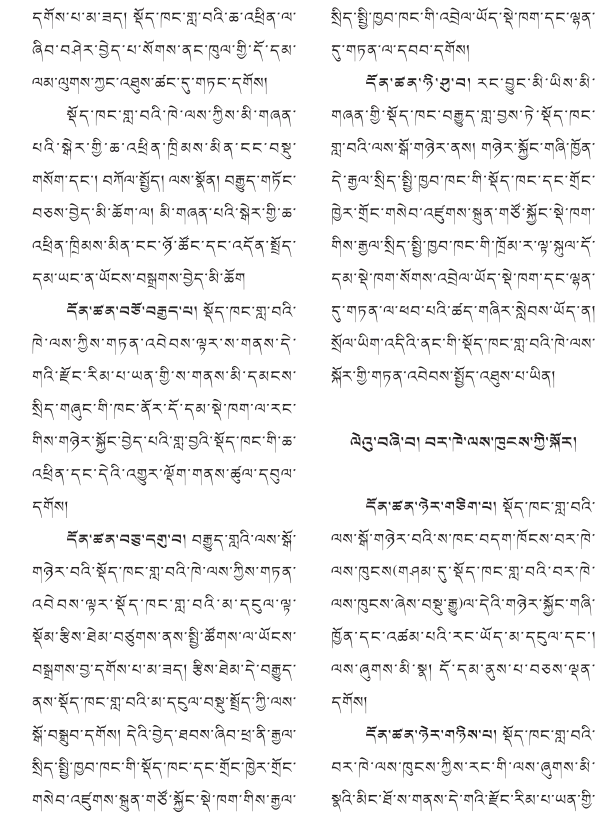 དགོས་པ་མ་ཟད། སྡོད་ཁང་གླ་བའི་ཆ་འཕྲིན་ལ་
ཞིབ་བཤེར་བྱེད་པ་སོགས་ནང་ཁུལ་གྱི་དོ་དམ་
ལམ་ལུགས་ཀྱང་འཐུས་ཚང་དུ་གཏང་དགོས།
སྡོད་ཁང་གླ་བའི་ཁེ་ལས་ཀྱིས་མི་གཞན་
པའི་སྒེར་གྱི་ཆ་འཕྲིན་ཁྲིམས་མིན་ངང་བསྡུ་
གསོག་དང་། བཀོལ་སྤྱོད། ལས་སྣོན། བརྒྱུད་གཏོང་
བཅས་བྱེད་མི་ཆོག་ལ། མི་གཞན་པའི་སྒེར་གྱི་ཆ་
འཕྲིན་ཁྲིམས་མིན་ངང་ཉོ་ཚོང་དང་འདོན་སྤྲོད་
དམ་ཡང་ན་ཡོངས་བསྒྲགས་བྱེད་མི་ཆོག
དོན་ཚན་བཅོ་བརྒྱད་པ། སྡོད་ཁང་གླ་བའི་
ཁེ་ལས་ཀྱིས་གཏན་འབེབས་ལྟར་ས་གནས་དེ་
གའི་རྫོང་རིམ་པ་ཡན་གྱི་ས་གནས་མི་དམངས་
སྲིད་གཞུང་གི་ཁང་ནོར་དོ་དམ་སྡེ་ཁག་ལ་རང་
གིས་གཉེར་སྐྱོང་བྱེད་པའི་གླ་བྱའི་སྡོད་ཁང་གི་ཆ་
འཕྲིན་དང་དེའི་འགྱུར་ལྡོག་གནས་ཚུལ་དབུལ་
དགོས།
དོན་ཚན་བཅུ་དགུ་བ། བརྒྱུད་གླའི་ལས་སྒོ་
གཉེར་བའི་སྡོད་ཁང་གླ་བའི་ཁེ་ལས་ཀྱིས་གཏན་
འབེབས་ལྟར་སྡོད་ཁང་གླ་བའི་མ་དངུལ་ལྟ་
སྡོམ་རྩིས་ཐེམ་བཙུགས་ནས་སྤྱི་ཚོགས་ལ་ཡོངས་
བསྒྲགས་བྱ་དགོས་པ་མ་ཟད། རྩིས་ཐེམ་དེ་བརྒྱུད་
ནས་སྡོད་ཁང་གླ་བའི་མ་དངུལ་བསྡུ་སྤྲོད་ཀྱི་ལས་
སྒོ་བསྒྲུབ་དགོས། དེའི་བྱེད་ཐབས་ཞིབ་ཕྲ་ནི་རྒྱལ་
སྲིད་སྤྱི་ཁྱབ་ཁང་གི་སྡོད་ཁང་དང་གྲོང་ཁྱེར་གྲོང་
གསེབ་འཛུགས་སྐྲུན་གཙོ་སྐྱོང་སྡེ་ཁག་གིས་རྒྱལ་
སྲིད་སྤྱི་ཁྱབ་ཁང་གི་འབྲེལ་ཡོད་སྡེ་ཁག་དང་ལྷན་
དུ་གཏན་ལ་དབབ་དགོས།
དོན་ཚན་ཉི་ཤུ་བ། རང་བྱུང་མི་ཡིས་མི་
གཞན་གྱི་སྡོད་ཁང་བརྒྱུད་གླ་བྱས་ཏེ་སྡོད་ཁང་
གླ་བའི་ལས་སྒོ་གཉེར་ནས། གཉེར་སྐྱོང་གཞི་ཁྱོན་
དེ་རྒྱལ་སྲིད་སྤྱི་ཁྱབ་ཁང་གི་སྡོད་ཁང་དང་གྲོང་
ཁྱེར་གྲོང་གསེབ་འཛུགས་སྐྲུན་གཙོ་སྐྱོང་སྡེ་ཁག་
གིས་རྒྱལ་སྲིད་སྤྱི་ཁྱབ་ཁང་གི་ཁྲོམ་ར་ལྟ་སྐུལ་དོ་
དམ་སྡེ་ཁག་སོགས་འབྲེལ་ཡོད་སྡེ་ཁག་དང་ལྷན་
དུ་གཏན་ལ་ཕབ་པའི་ཚད་གཞིར་སླེབས་ཡོད་ན།
སྲོལ་ཡིག་འདིའི་ནང་གི་སྡོད་ཁང་གླ་བའི་ཁེ་ལས་
སྐོར་གྱི་གཏན་འབེབས་སྤྱོད་འཐུས་པ་ཡིན།
ལེའུ་བཞི་བ། བར་ཁེ་ལས་ཁུངས་ཀྱི་སྐོར།
དོན་ཚན་ཉེར་གཅིག་པ། སྡོད་ཁང་གླ་བའི་
ལས་སྒོ་གཉེར་བའི་ས་ཁང་བདག་ཁོངས་བར་ཁེ་
ལས་ཁུངས(གཤམ་དུ་སྡོད་ཁང་གླ་བའི་བར་ཁེ་
ལས་ཁུངས་ཞེས་བསྡུ་རྒྱུ)ལ་དེའི་གཉེར་སྐྱོང་གཞི་
ཁྱོན་དང་འཚམ་པའི་རང་ཡོད་མ་དངུལ་དང་།
ལས་ཞུགས་མི་སྣ། དོ་དམ་ནུས་པ་བཅས་ལྡན་
དགོས།
དོན་ཚན་ཉེར་གཉིས་པ། སྡོད་ཁང་གླ་བའི་
བར་ཁེ་ལས་ཁུངས་ཀྱིས་རང་གི་ལས་ཞུགས་མི་
སྣའི་མིང་ཐོ་ས་གནས་དེ་གའི་རྫོང་རིམ་པ་ཡན་གྱི་